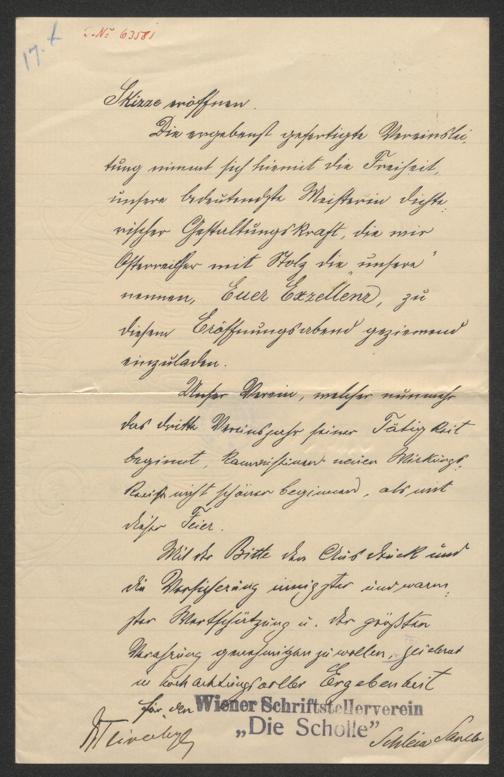 17. X
Z. Nº 63581
Skizze eröffnen.
Die ergebenst gefertigte Vereinslei,
tung nimmt sich hiemit die Freiheit,
unsere bedeutendste Meisterin dichte
rischer Gestaltungskraft, die wir
Österreicher mit Stolz die „unsere"
nennen, Euer Exzellenz, zu
diesem Eröffnungsabend geziemend
einzuladen.
Unser Verein, welcher nunmehr
das dritte Vereinsjahr seiner Tätigkeit
beginnt, kann seinen neuen Wirkungs,
kreis nicht schöner beginnen, als mit
dieser Feier.
Mit der Bitte den Ausdruck und
die Versicherung innigster und wärm,
ster Wertschätzung u. der größten
Verehrung genehmigen zu wollen, zeichnet
in hochachtungsvoller Ergebenheit
für den Wiener Schriftstellerverein
„Die Scholle"